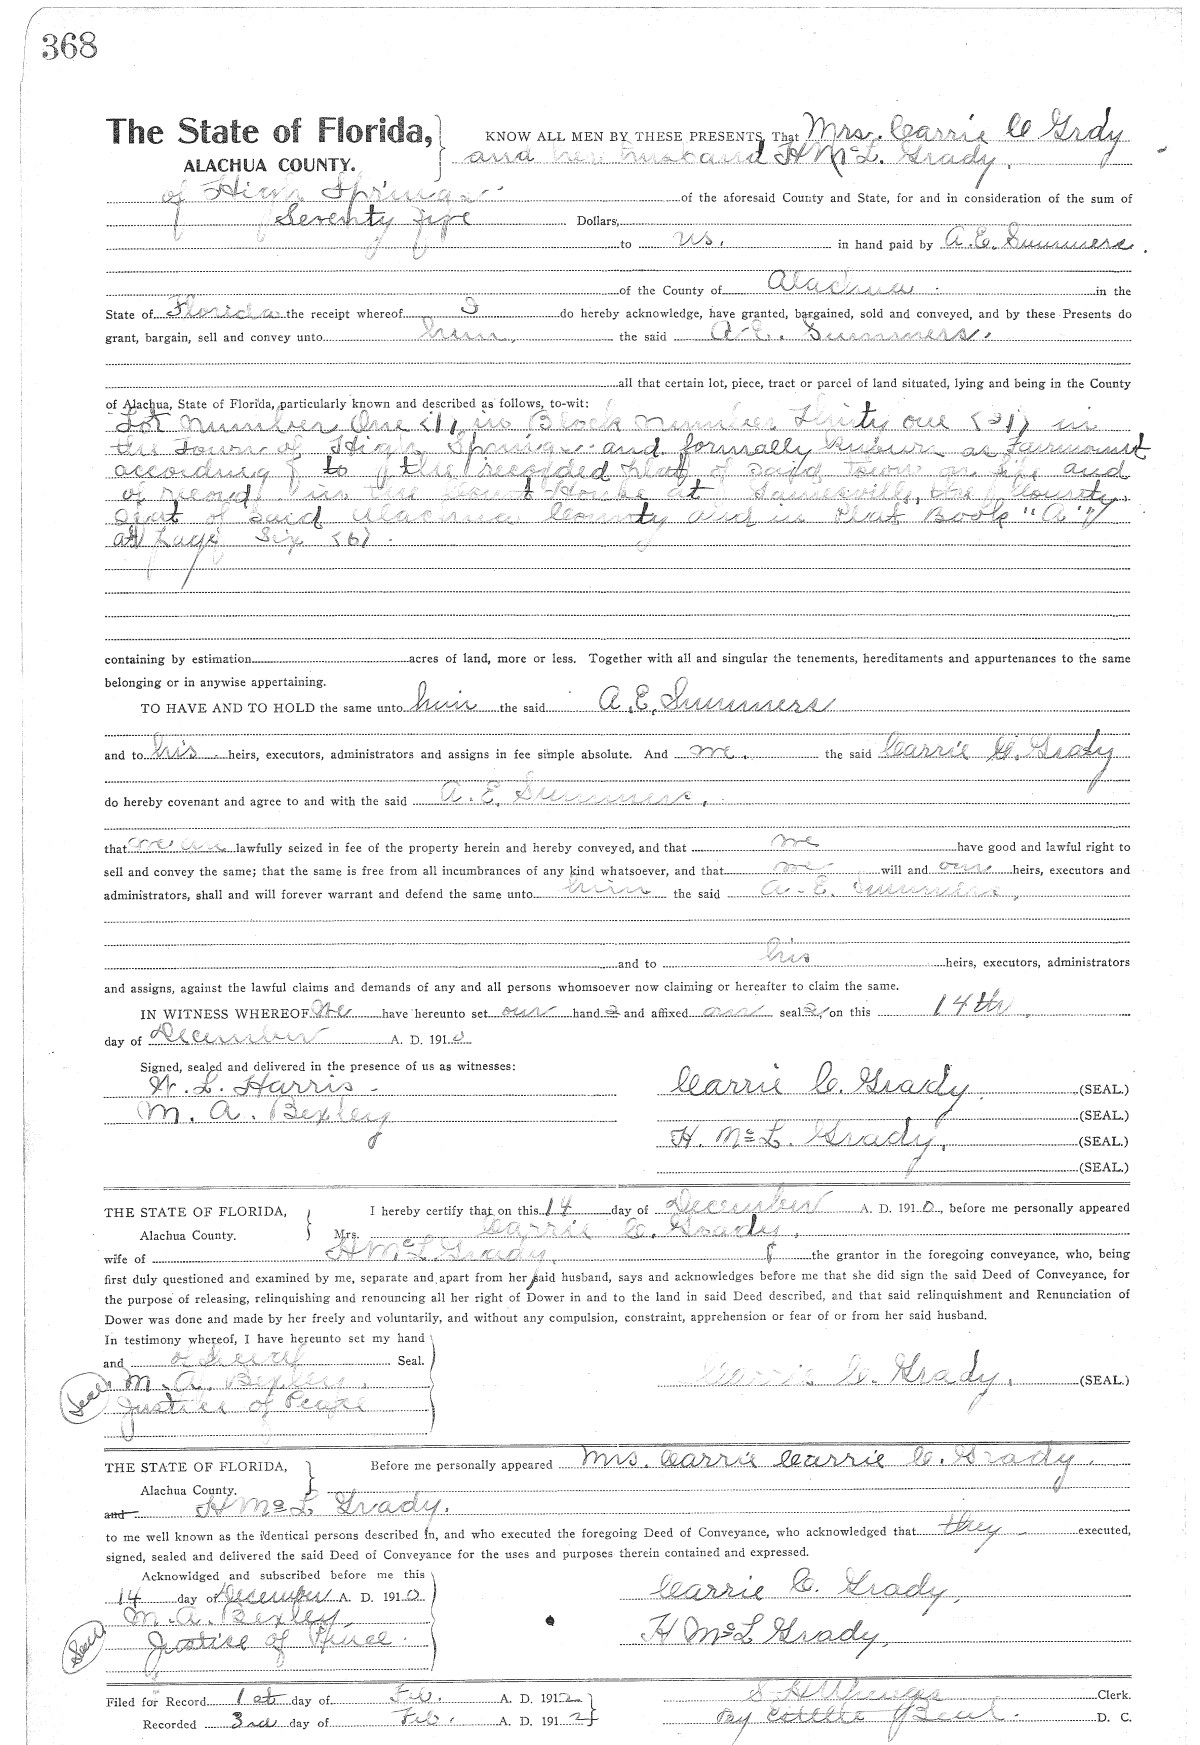 368
The State of Florida, KNOW ALL MEN BY THESE PRESENTS, That Mrs. Carrie C Grdy
ALACHUA COUNTY. and her husband H Mc L. Grady.
of High Springs of the aforesaid County and State, for and in consideration of the sum of
Seventy five Dollars,
to us. in hand paid by A.E. Summers.
of the County of Alachua in the
State of Florida the receipt whereof I do hereby acknowledge, have granted, bargained, sold and conveyed, and by these Presents do
grant, bargain, sell and convey unto him, the said A-E. Summers.
all that certain lot, piece, tract or parcel of land situated, lying and being in the County
of Alachua, State of Florida, particularly known and described as follows, to-wit:
Lot Number One (1) in Block Number Thirty one (31) in
the Town of High Springs and formally known as Fairmount
according to the recorded plat of said town on file and
of record in the Court House at Gainesville, the County
Seat of said Alachua County and in Plat Book "A"
at page Six (6).
containing by estimation acres of land, more or less. Together with all and singular the tenements, hereditaments and appurtenances to the same
belonging or in anywise appertaining.
TO HAVE AND TO HOLD the same unto him the said A.E. Summers
and to his heirs, executors, administrators and assigns in fee simple absolute. And we, the said Carrie C. Grady
do hereby covenant and agree to and with the said A.E. Summers,
that we are lawfully seized in fee of the property herein and hereby conveyed, and that we have good and lawful right to
sell and convey the same; that the same is free from all incumbrances of any kind whatsoever, and that we will and our heirs, executors and
administrators, shall and will forever warrant and defend the same unto him the said A-E. Summers,
and to his heirs, executors, administrators
and assigns, against the lawful claims and demands of any and all persons whomsoever now claiming or hereafter to claim the same.
IN WITNESS WHEREOF We have hereunto set our hand s and affixed our seal s, on this 14th
day of December A. D. 1910
Signed, sealed and delivered in the presence of us as witnesses:
W. L. Harris. Carrie C. Grady. (SEAL.)
M. A. Bexley (SEAL.)
H. Mc L. Grady. (SEAL.)
(SEAL.)
THE STATE OF FLORIDA, I hereby certify that on this 14 day of December A. D. 1910, before me personally appeared
Alachua County. Mrs. Carrie C. Grady,
wife of H Mc L Grady the grantor in the foregoing conveyance, who, being
first duly questioned and examined by me, separate and apart from her said husband, says and acknowledges before me that she did sign the said Deed of Conveyance, for
the purpose of releasing, relinquishing and renouncing all her right of Dower in and to the land in said Deed described, and that said relinquishment and Renunciation of
Dower was done and made by her freely and voluntarily, and without any compulsion, constraint, apprehension or fear of or from her said husband.
In testimony whereof, I have hereunto set my hand
and Seal.
Seal M. A. Bexley, Carrie C. Grady. (SEAL.)
Justice of Peace
THE STATE OF FLORIDA, Before me personally appeared Mrs. Carrie Carrie C. Grady.
Alachua County.
and H Mc L Grady.
to me well known as the identical persons described in, and who executed the foregoing Deed of Conveyance, who acknowledged that they executed,
signed, sealed and delivered the said Deed of Conveyance for the uses and purposes therein contained and expressed.
Acknowldged and subscribed before me this
14 day of December A. D. 1910 Carrie C. Grady,
M. A. Bexley,
Seal Justice of Peace. H Mc L Grady.
Filed for Record 1st day of Feb. A. D. 1912 Clerk.
Recorded 3rd day of Feb. A. D. 1912 By D. C.